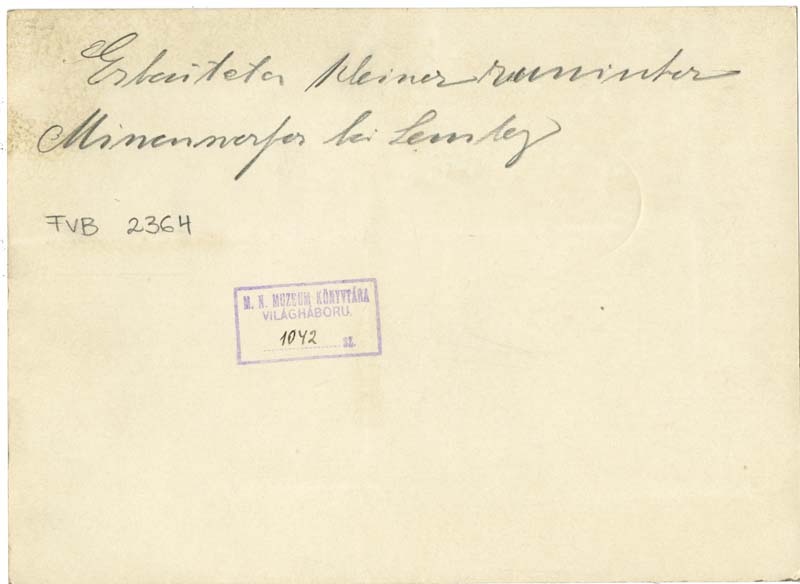 Erbauteter kleiner russischer
Minenwerfer bei Lemberg
FVB 2364
M. N. MUZEUM KÖNYVTÁRA
VILÁGHÁBORU.
1042 SZ.